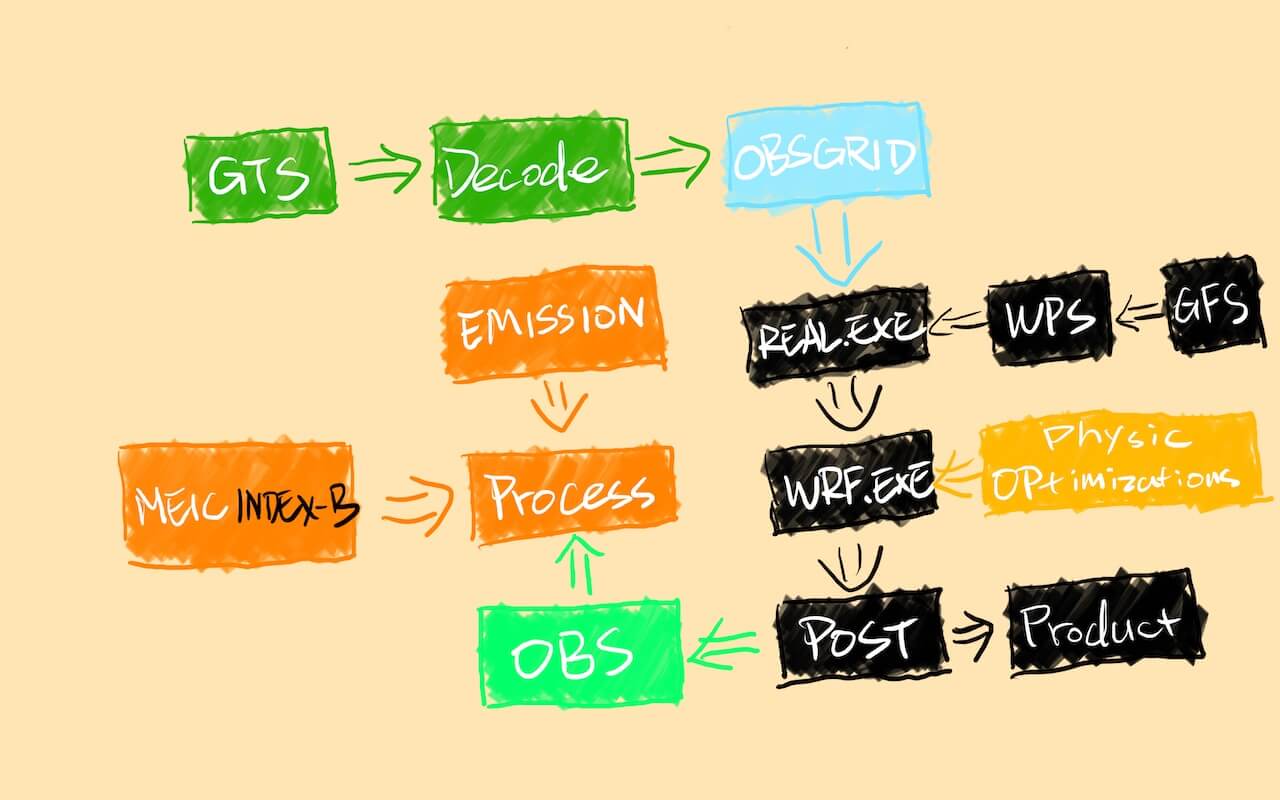 GTS
Decode
OBSGRID
EMISSION
REAL.EXE
WPS
GFS
MEIC INDEX-B
Process
WRF.EXE
Physic
OPtimizations
OBS
POST
Product